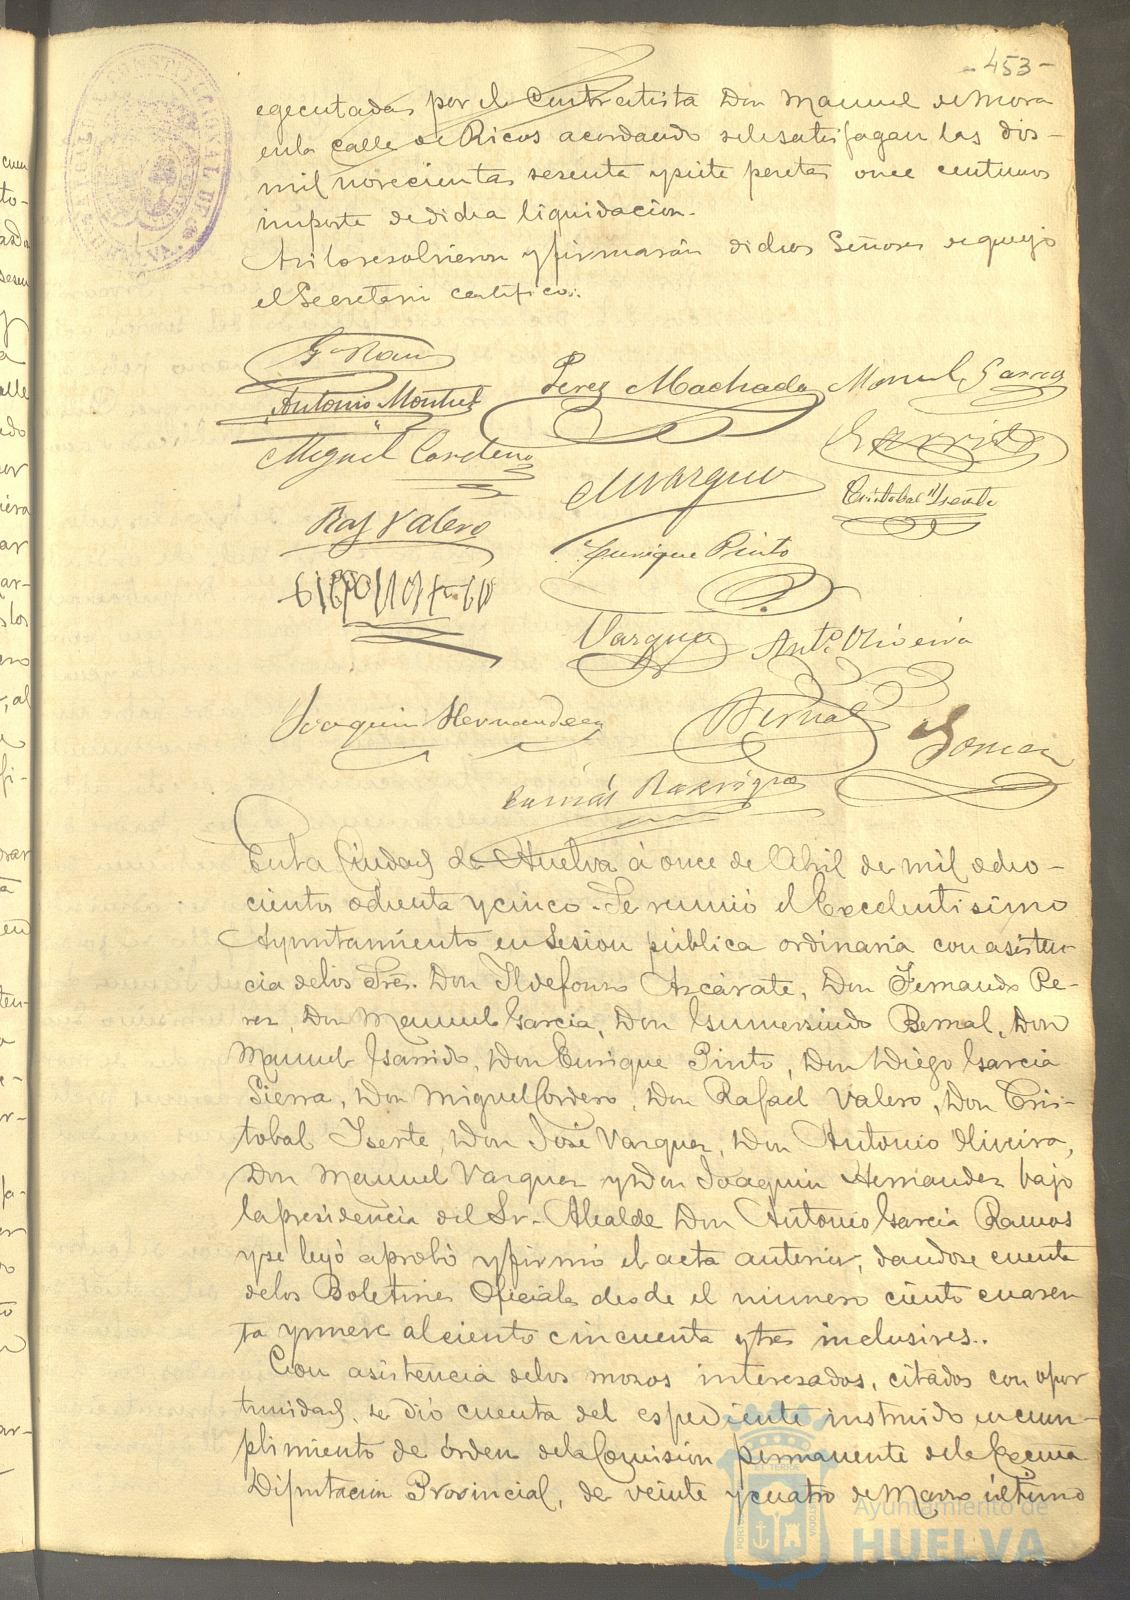 - 453 -
egecutadas por el Contratista Don Manuel de Mora
en la calle de Ricos acordando se le satisfagan las dos
mil novecientas sesenta y siete pesetas once centimos
importe de dicha liquidacion.
Asi lo resolvieron y firmarán dichos Señores de que yo
el Secretario certifico.
Gª Ramos
Perez Machado Manuel Garcia
Antonio
Miguel Cordero
Garrido
Marquez
Cristobal Yseste
Raf Valero
Enrique Pinto
Vazquez Antº Oliveira
Joaquin Hernandez
Bernal
Tomás Rodriguez
En la Ciudad de Huelva á once de Abril de mil ocho-
cientos ochenta y cinco. Se reunió el Excelentisimo
Ayuntamiento en sesion pública ordinaria con asisten-
cia de los Sres. Don Ildefonso Azcárate, Don Fernando Pe-
rez, Don Manuel Garcia, Don Gumersindo Bernal, Don
Manuel Garrido, Don Enrique Pinto, Don Diego Garcia
Sierra, Don Miguel Cordero, Don Rafael Valero, Don Cris-
tobal Yseste, Don José Vazquez, Don Antonio Oliveira,
Don Manuel Vazquez y Don Joaquin Hernandez bajo
la presidencia del Sr. Alcalde Don Antonio Garcia Ramos
y se leyó aprobó y firmó el acta anterior, dandose cuenta
de los Boletines Oficiales desde el numero ciento cuaren
ta y nueve al ciento cincuenta y tres inclusives.
Con asistencia de los mozos interesados, citados con opor
tunidad, se dió cuenta del espediente instruido en cum-
plimiento de órden de la Comisión permanente de la Excma
Diputacion Provincial, de veinte y cuatro de Marzo último
Ayuntamiento de
HUELVA